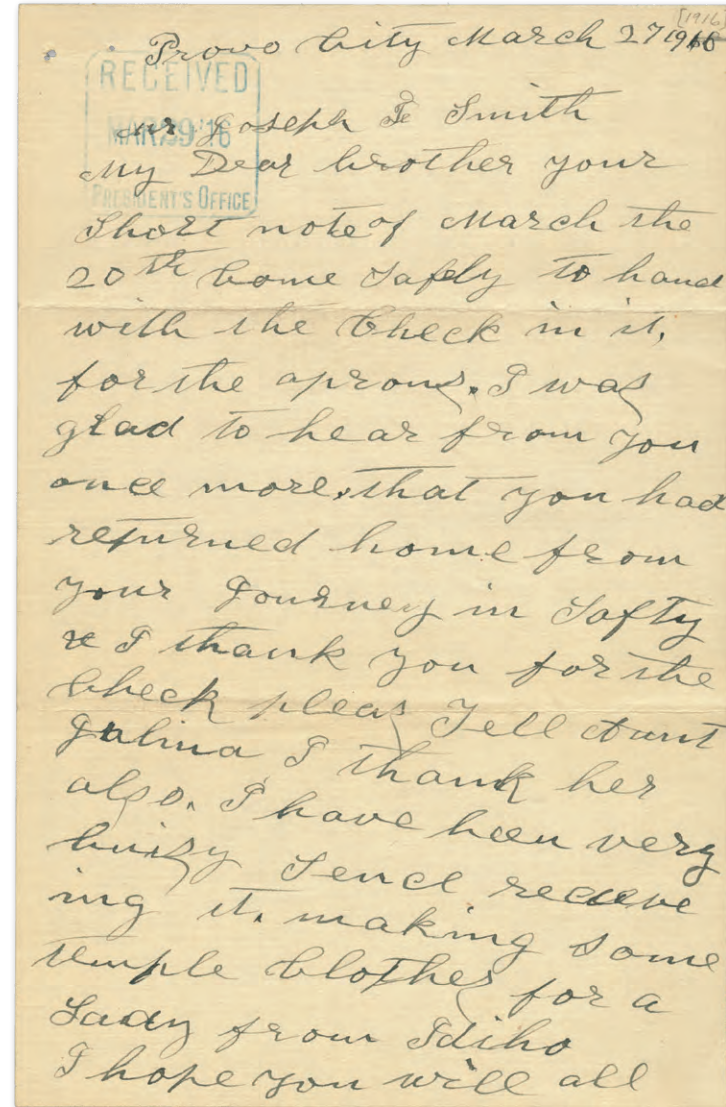 [1916]
Provo City March 27 1916
RECEIVED
MAR 29 '16
PRESIDENT'S OFFICE
Mr Joseph F Smith
My Dear brother your
Short note of March the
20th Come Safely to hand
with the Check in it,
for the aprons. I was
glad to hear from you
once more, that you had
returned home from
your Journey in Safty
& I thank you for the
Check pleas Tell Aunt
Julina I thank her
also. I have been very
buisy Sence receive
ing it. making some
temple Clothes for a
Lady from Idiho
I hope you will all